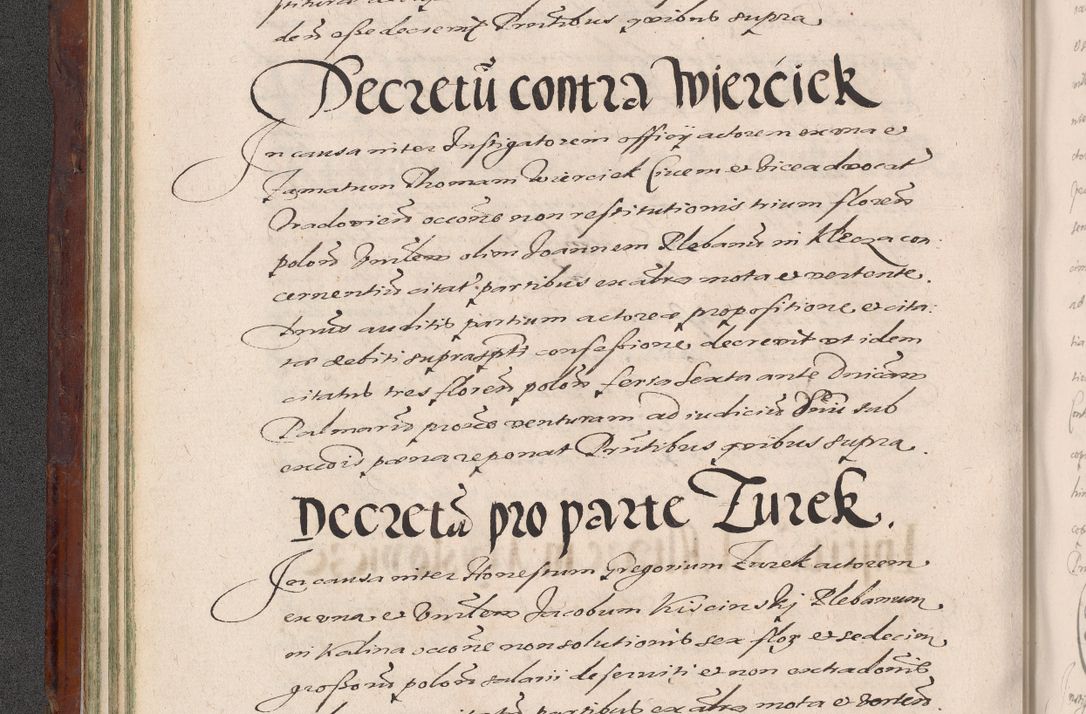 den̄ esse decrevit Pn̄tibus quibus supra
Decretū contra Wierciek
In causa inter Instigatorem officij actorem ex una et
famatum Thomam Wierciek Civem et viceadvocat̄
Vradovien̄ occon̄e non restitutionis trium floren̄
polon̄ Vn̄lem olim Joannem Plebanū in Klecza con:
cernentiū citat̄ partibus ex altra mota et vertente.
Dnūs auditis partium actorea propositione, et cita:
ta debiti suprasp̄ti confessione decrevit ut idem
citatus tres floren̄ polon̄ feria sexta ante Dnicam
Palmarū proxe venturam ad iudiciū Dn̄i sub
excōis pæna reponat Pn̄tibus quibus supra.
Decretū pro parte Zurek.
In causa inter Honestum Gregorium Zurek actorem
ex una, et Vn̄lem Jacobum Kiscinskj Plebanum
in Kalina occon̄e non solutionis sex flor et sedecim
grossorū polon̄ salarii deserviti et non extradon̄is
partibus ex altra mota et verten̄.